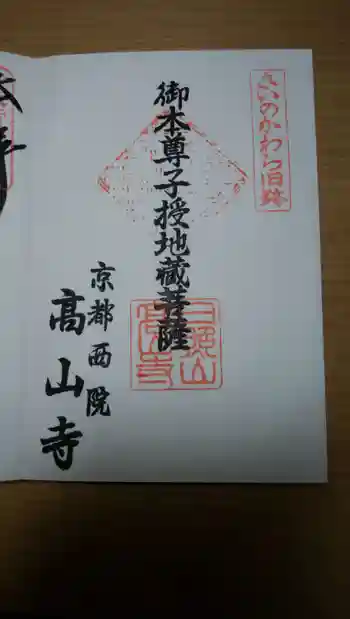 さいのかわら旧跡
御本尊子授地藏菩薩
京都西院
高山寺